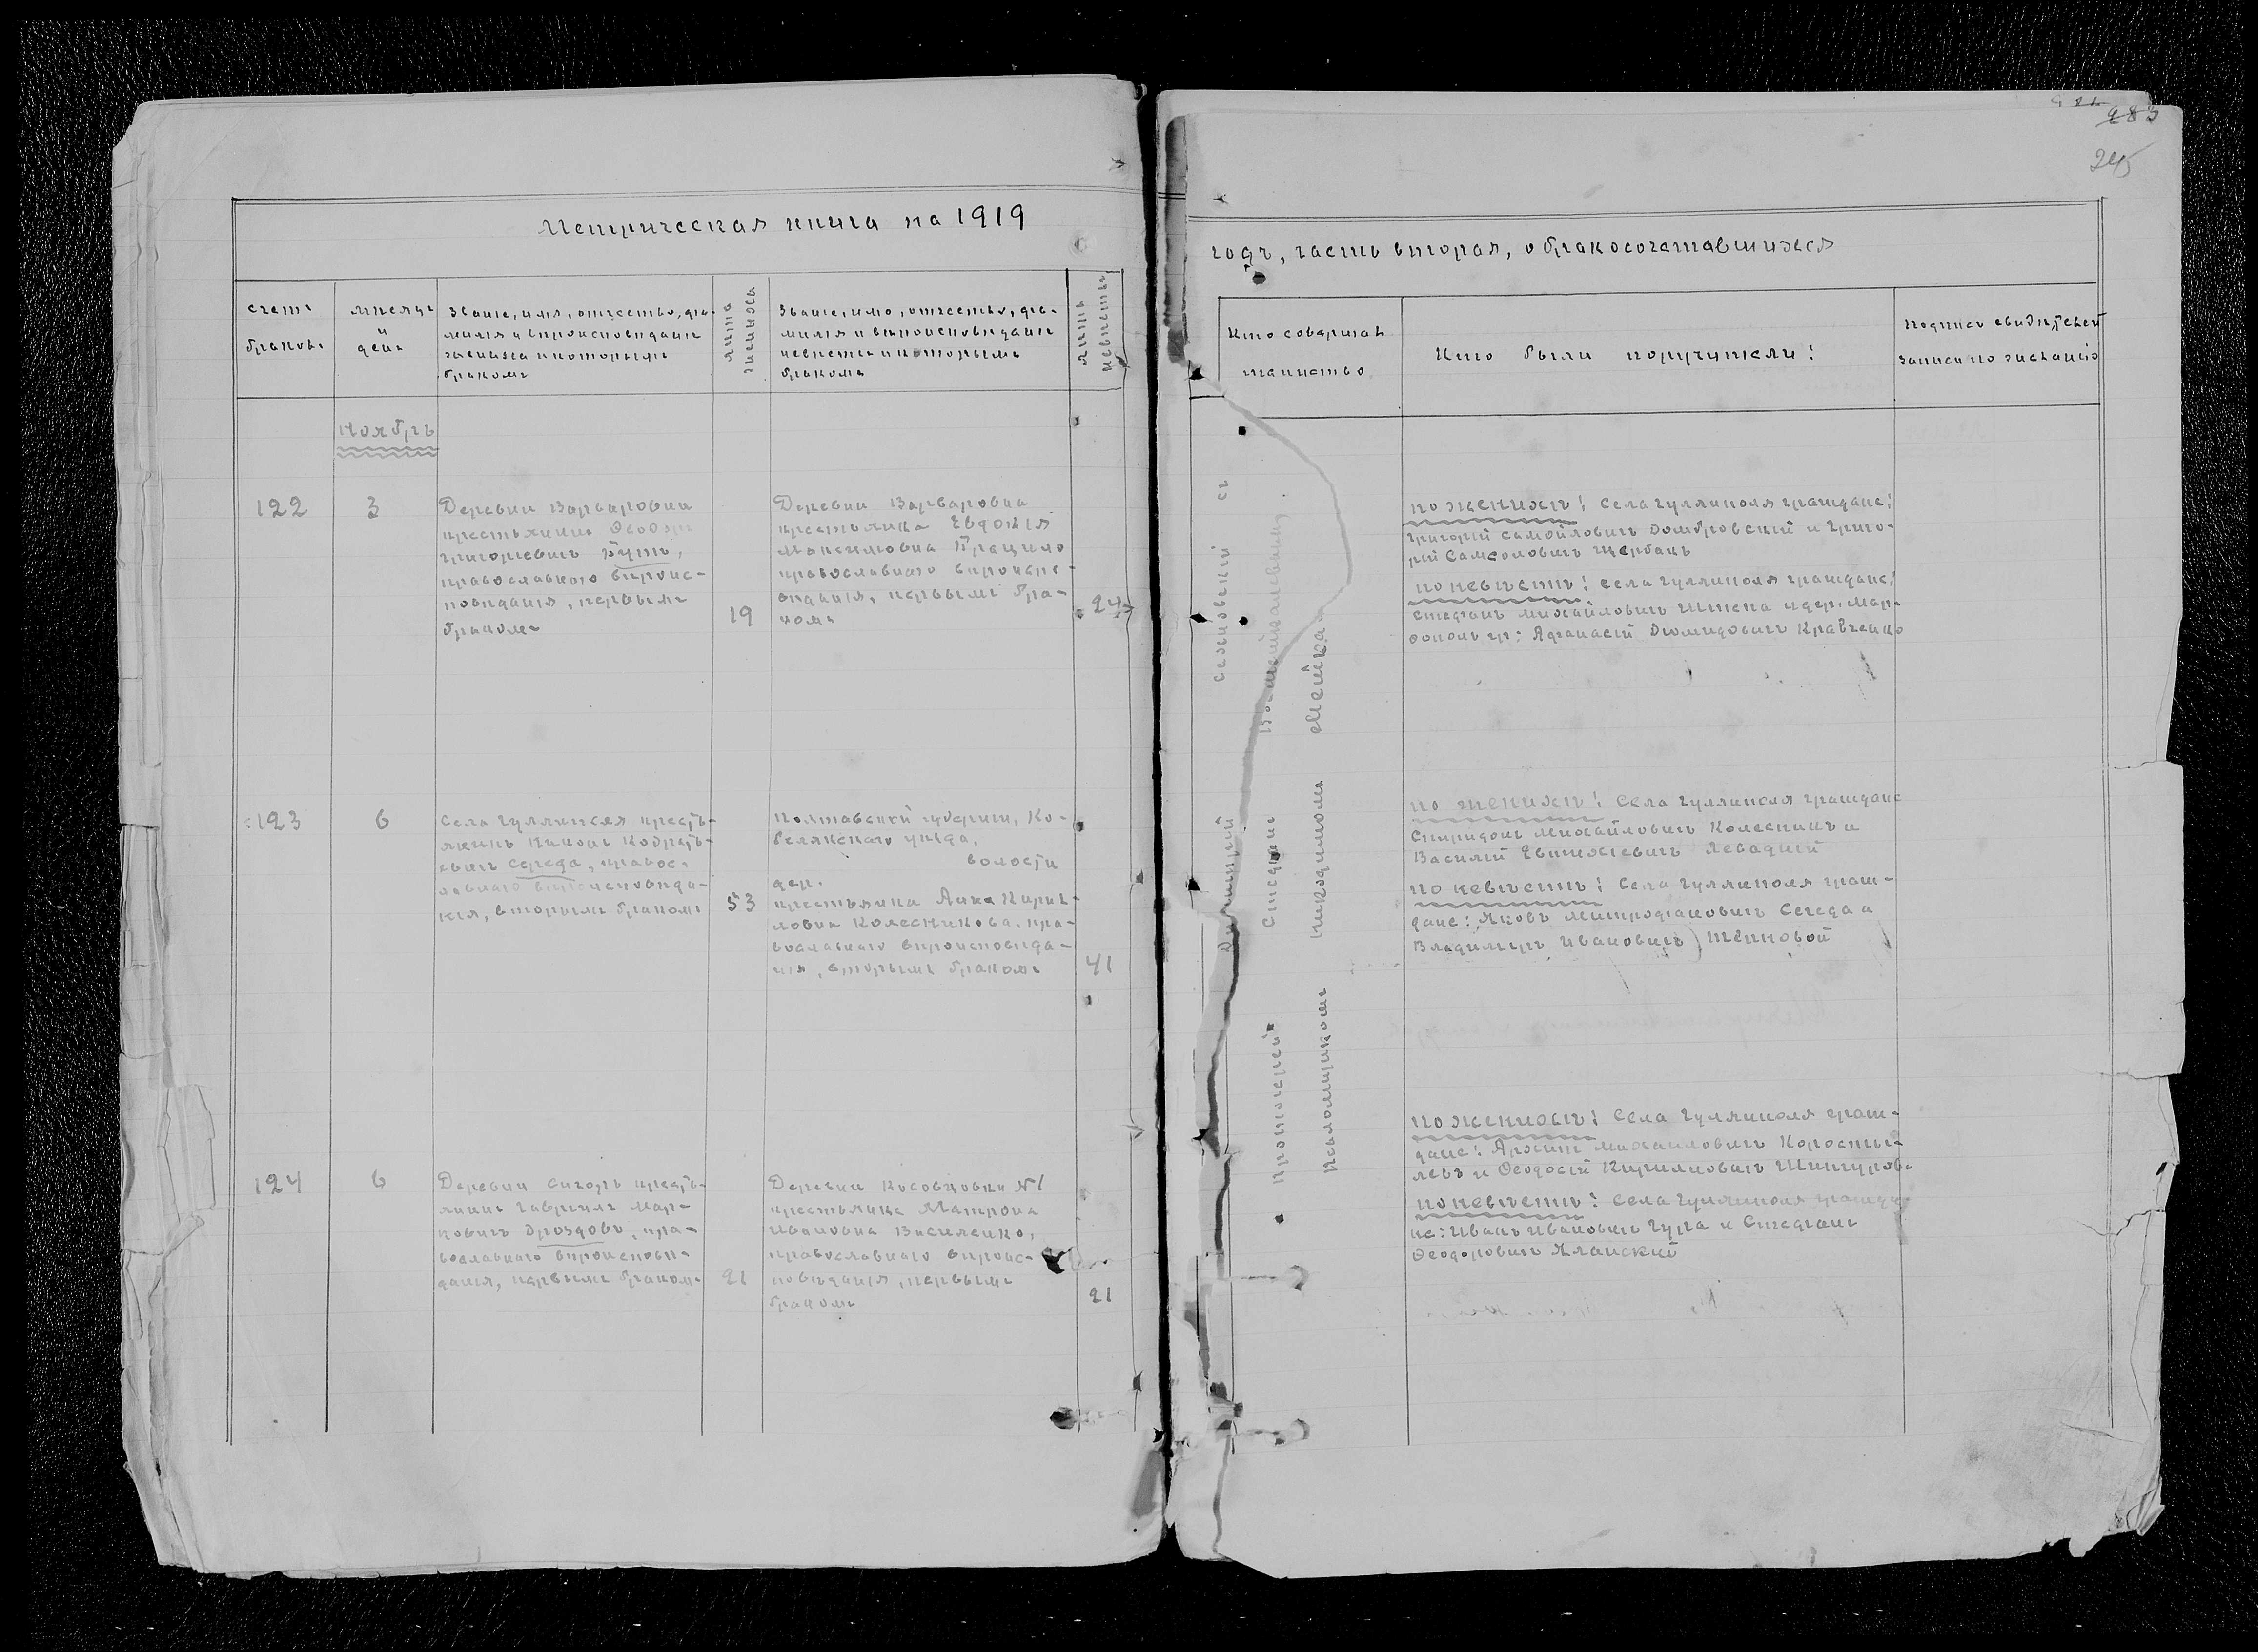 283
245
Метрическая книга на 1919
годъ, часть вторая, о бракосочетавшихся
счетъ
браковъ
мѣсяцъ
и
день
Званіе, имя, отчество, фа-
милія и вѣроисповѣданіе
жениха и которымъ
бракомъ
лѣта
жениха
Званіе, имя, отчество, фа-
милія и вѣроисповѣданіе
невѣсты и которымъ
бракомъ
лѣта
невѣсты
Кто совершалъ
таинство
Кто были поручители:
Подпись свидѣтелей
записи по желанію
Ноябрь
122
3
Деревни Варваровки
крестьянинъ Феодоръ
Григоріевичъ Бутъ,
православнаго вѣроис-
повѣданія, первымъ
бракомъ
19
Деревни Варваровки
крестьянка Евдокія
Максимовна Брацило
православнаго вѣроиспо-
вѣданія, первымъ бра-
комъ
24
по женихѣ: села Гуляйполя граждане:
Григорій Самойловичъ Домбровскій и Григо-
рій Самсоновичъ Щербакъ
по невѣстѣ: села Гуляйполя граждане:
Стефанъ Михайловичъ Штепа и дер. Мар-
фополь гр: Афанасій Діомидовичъ Кравченко
123
6
Села Гуляйполя кресть-
янинъ Никонъ Кодрать-
евичъ Середа, правос-
лавнаго вѣроисповѣда-
нія, вторымъ бракомъ
53
Полтавской губерніи, Ко-
белякскаго уѣзда,
волости
дер.
крестьянка Анна Кирил-
ловна Колесникова, пра-
вославнаго вѣроисповѣда-
нія, вторымъ бракомъ
41
по женихѣ: Села Гуляйполя граждане
Спиридонъ Михайловичъ Колесникъ и
Василій Евтихіевичъ Левадній
по невѣстѣ: Села Гуляйполя граж-
дане: Яковъ Митрофановичъ Середа и
Владиміръ Ивановичъ Терновой
124
6
Деревни Сигоръ кресть-
янинъ Гавріилъ Мар-
ковичъ Дроздовъ, пра-
вославнаго вѣроисповѣ-
данія, первымъ бракомъ
21
Деревни Косовцовки №1
крестьянка Матрона
Ивановна Василенко,
православнаго вѣроис-
повѣданія, первымъ
бракомъ
21
по женихѣ: Села Гуляйполя граж-
дане: Архипъ Михайловичъ Коросты-
левъ и Феодосій Кирилловичъ
по невѣстѣ: Села Гуляйполя гражда-
не: Иванъ Ивановичъ Гура и Стефанъ
Феодоровичъ Яланскій
Протоіерей Стефанъ Воскобойниковъ
Димитрій Сахновскій съ
Псаломщикомъ Никодимомъ Мейка